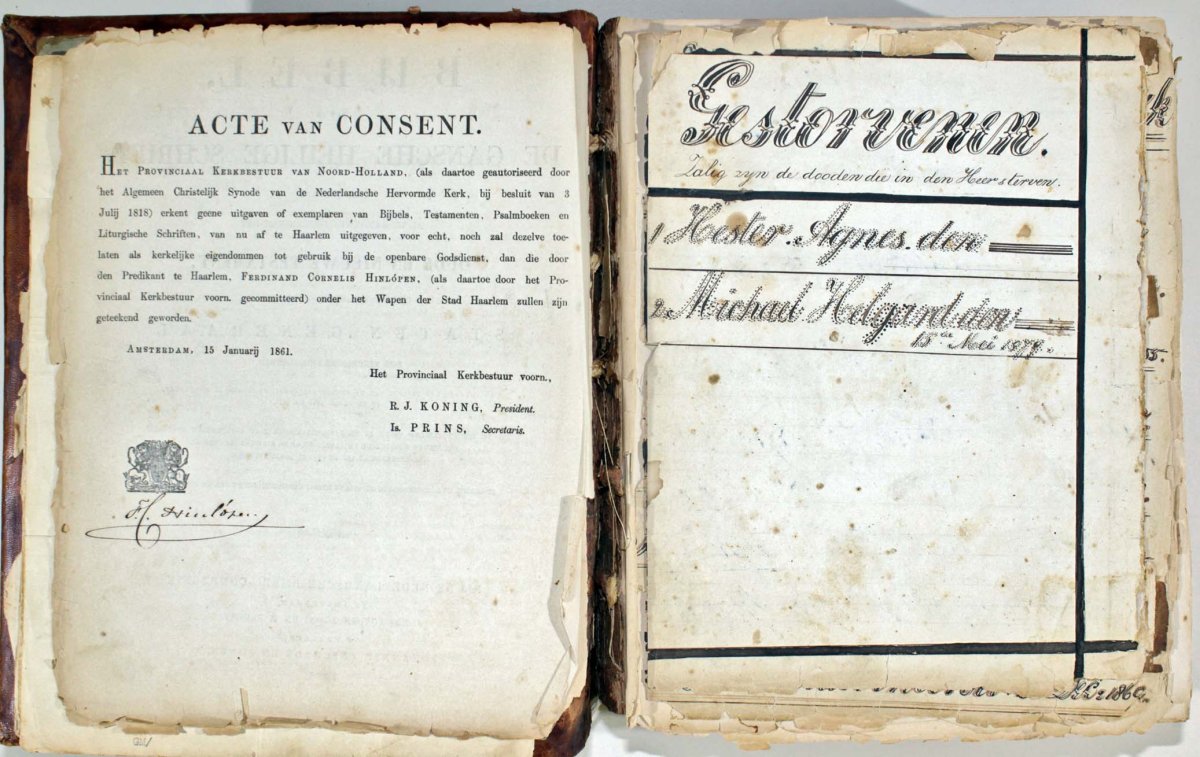 ACTE VAN CONSENT.
HET PROVINCIAAL KERKBESTUUR VAN NOORD-HOLLAND, (als daartoe geautoriseerd door
het Algemeen Christelijk Synode van de Nederlandsche Hervormde Kerk, bij besluit van 3
Julij 1818) erkent geene uitgaven of exemplaren van Bijbels, Testamenten, Psalmboeken en
Liturgische Schriften, van nu af te Haarlem uitgegeven, voor echt, noch zal dezelve toe-
laten als kerkelijke eigendommen tos gebruik bij de openbare Godsdienst, dan die door
den Predikant te Haarlem, FERDINAND CORNELIS HINLÓPEN, (als daartoe door het Pro-
vinciaal Kerkbestuur voorn. gecommitteerd) onder het Wapen der Stad Haarlem zullen zijn
geteekend geworden.
AMSTERDAM, 15 Januarij 1861.
Het Provinciaal Kerkbestuur voorn.,
R. J. KONING, President.
Is. PRINS, Secretaris.
Hinlópen
Gestorvenen.
Zalig zyn de dooden die in den Heer sterven.
1 Hester. Agnes. den
2 Michael Hdgard den
15 Mei 1879.